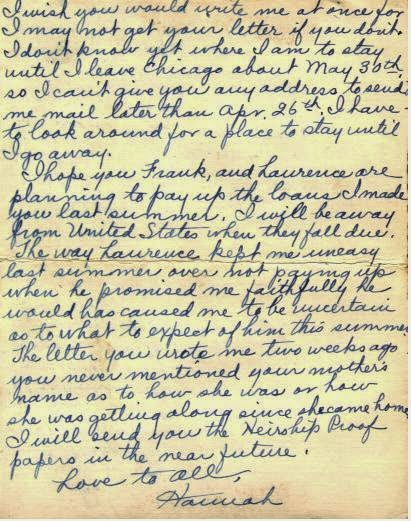 I wish you would write me at once for
I may not get your letter if you don't.
I don't know yet where I am to stay
until I leave Chicago about May 30th,
so I can't give you any address to send
me mail later than Apr. 26th. I have
to look around for a place to stay until
I go away.
I hope you Frank, and Laurence are
planning to pay up the loans I made
you last summer. I will be away
from United States when they fall due.
The way Laurence kept me uneasy
last summer over not paying up
when he promised me faithfully he
would has caused me to be uncertain
as to what to expect of him this summer.
The letter you wrote me two weeks ago
you never mentioned your mother's
name as to how she was or how
she was getting along since she came home
I will send you the Heirship Proof
papers in the near future.
Love to all,
Hannah